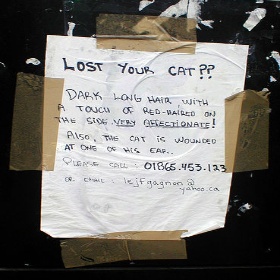 LOST YOUR CAT??
DARK LONG HAIR, WITH
A TOUCH OF RED-HAIRED ON
THE SIDE. VERY AFFECTIONATE!
ALSO, THE CAT IS WOUNDED
AT ONE OF HIS EAR..
PLEASE CALL: 01865.453.123
OR EMAIL: lejfgagnon@
yahoo.ca